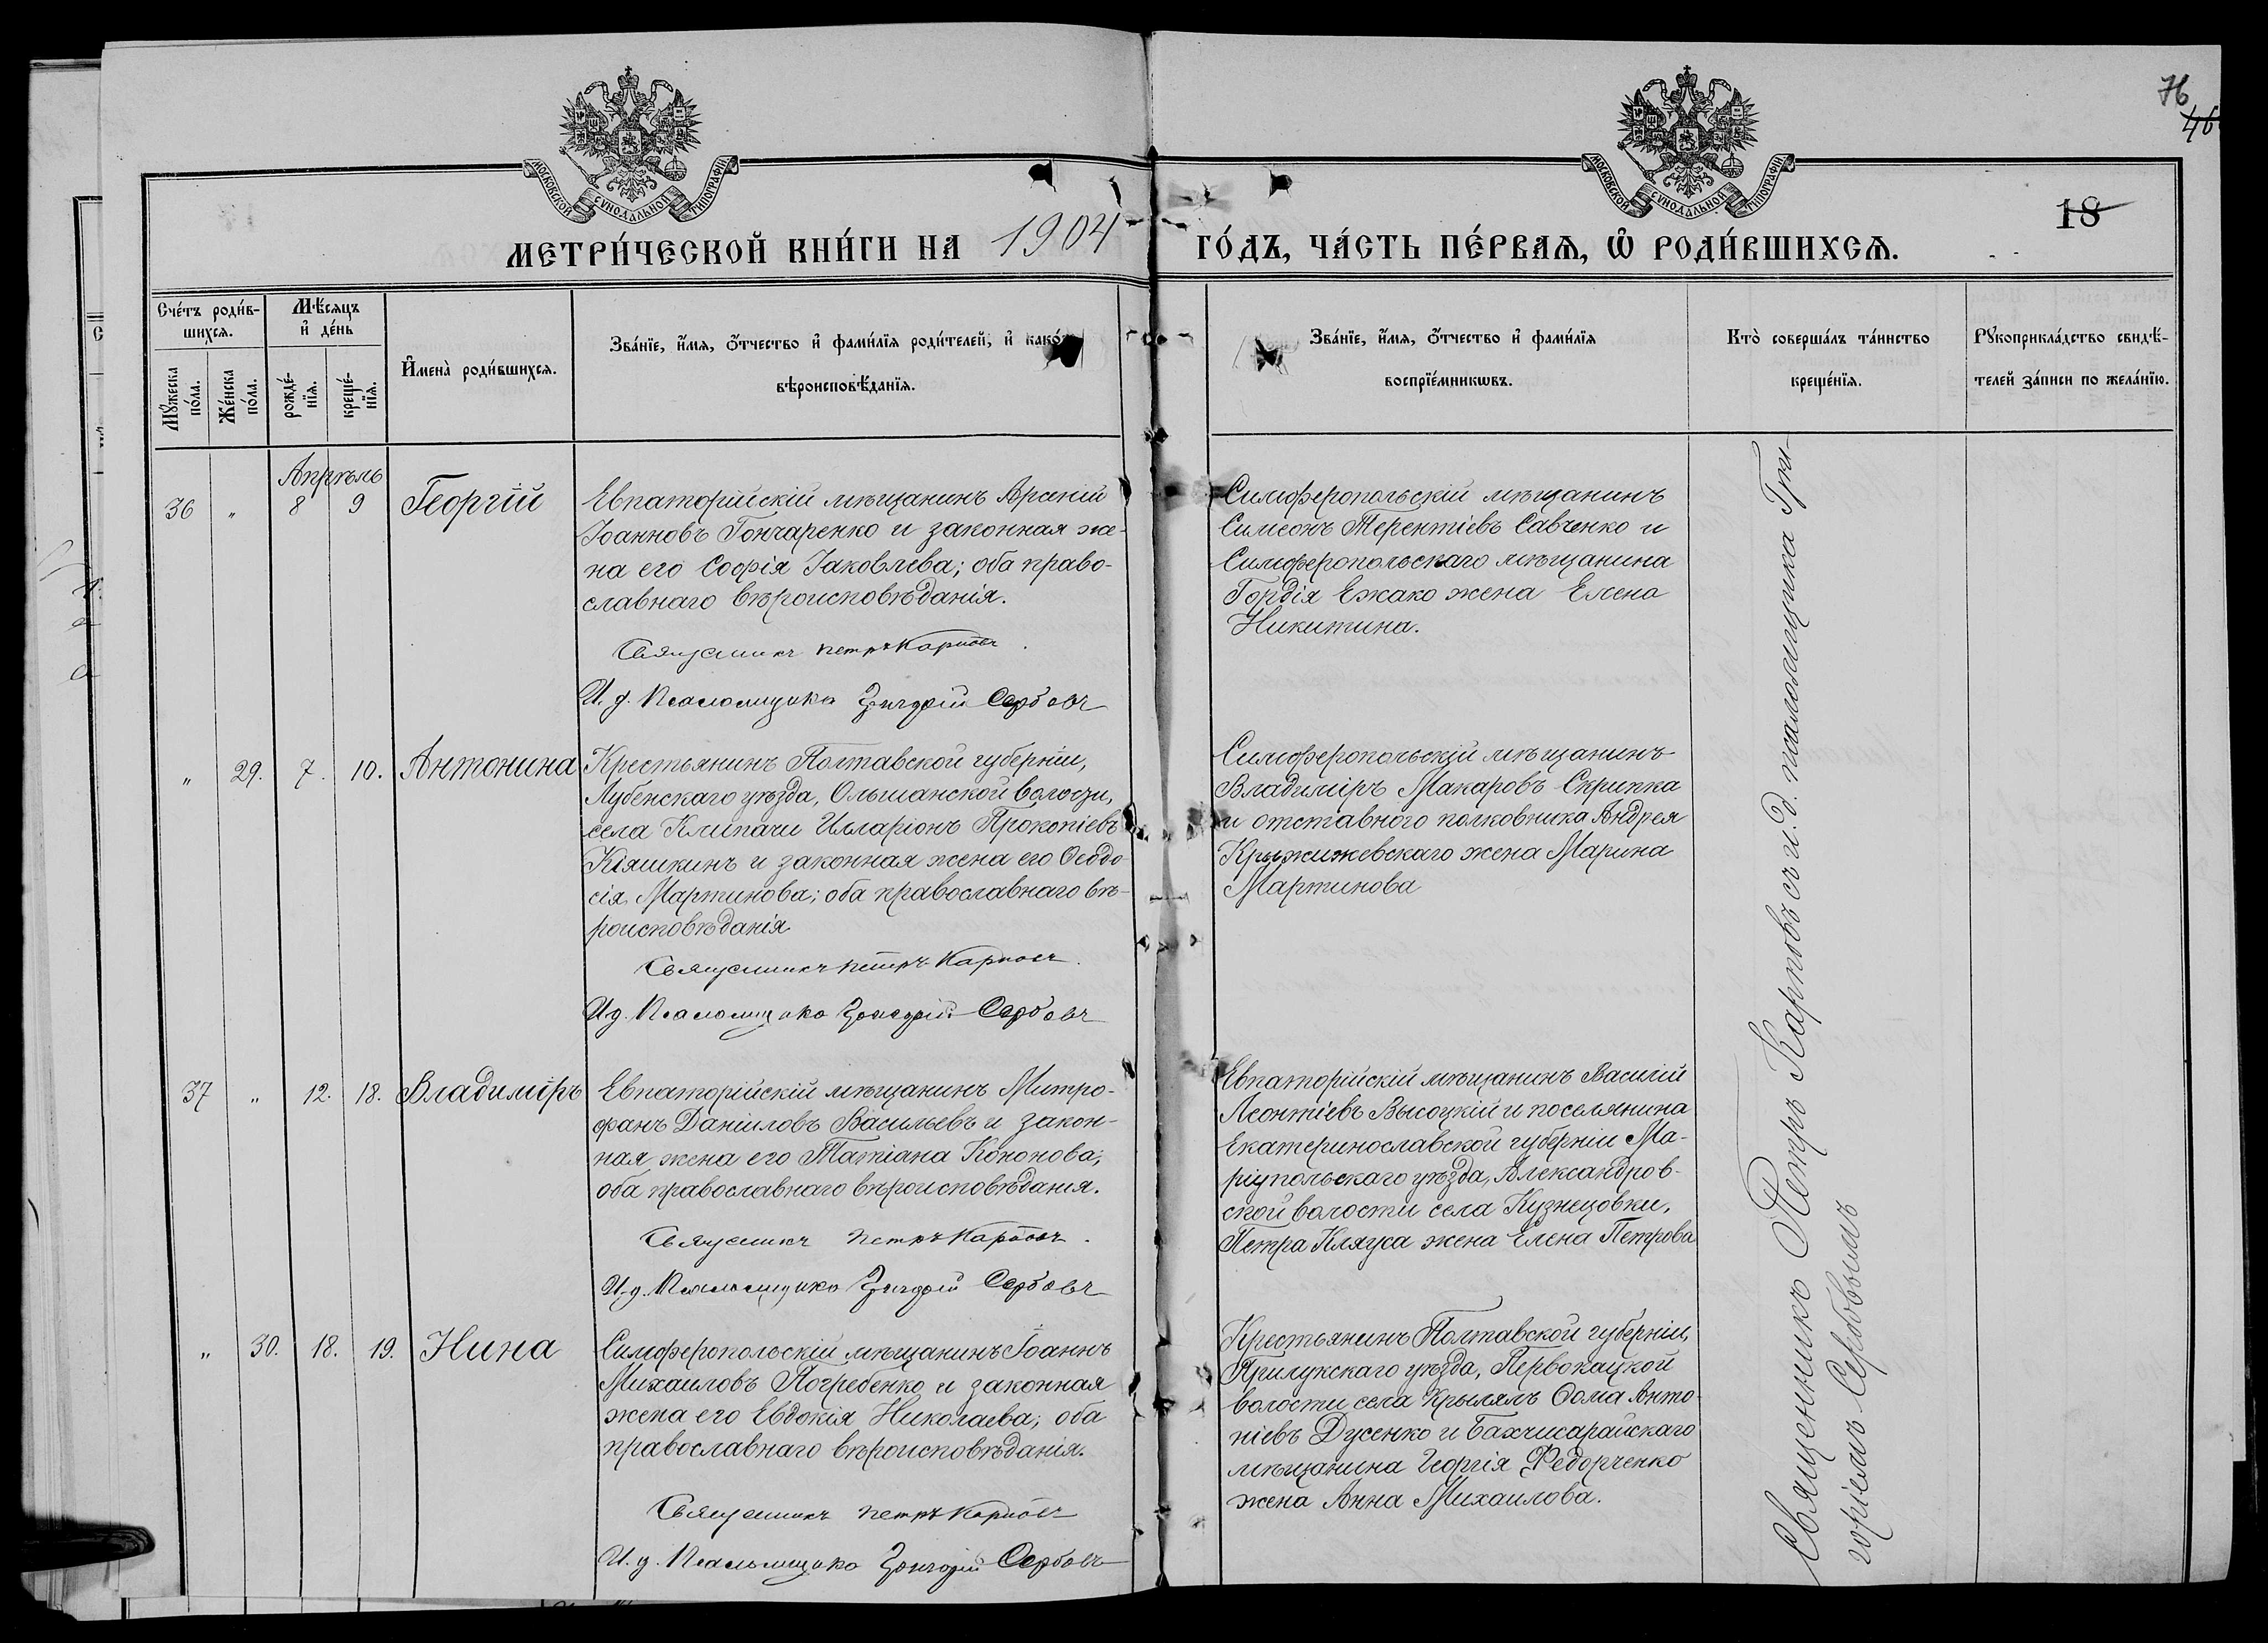 76
46
18
МОСКОВСКОЙ СѴНОДАЛЬНОЙ ТИПОГРАФІИ
МОСКОВСКОЙ СѴНОДАЛЬНОЙ ТИПОГРАФІИ
МЕТРИ́ЧЕСКОЙ КНИ́ГИ НА 1904 ГО́ДЪ, ЧА́СТЬ ПЕ́РВАѦ, Ѡ҆ РОДИ́ВШИХСѦ.
Сче́тъ роди́в-
шихсѧ.
Мѣ́сѧцъ
и҆ де́нь
Мꙋ́жеска
по́ла.
Же́нска
по́ла.
рожде́-
нїѧ.
креще́-
нїѧ.
И҆мена̀ роди́вшихсѧ.
Зва́нїе, и҆́мѧ, ѻ҆́тчество и҆ фами́лїѧ роди́телей, и҆ како́
вѣроисповѣ́данїѧ.
Зва́нїе, и҆́мѧ, ѻ҆́тчество и҆ фами́лїѧ
воспрїе́мникѡвъ.
Кто̀ соверша́лъ та́инство
креще́нїѧ.
Рꙋкоприкла́дство свидѣ́-
телей за́писи по жела́нїю.
Апрѣль
36 " 8 9 Георгій
Евпаторійскій мѣщанинъ Арсеній
Іоанновъ Гончаренко и законная же-
на его Софія Іаковлева; оба право-
славнаго вѣроисповѣданія.
Священникъ Петръ Карповъ.
И. д. Псаломщика Григорій Сербовъ
Симферопольскій мѣщанинъ
Симеонъ Терентіевъ Савченко и
Симферопольскаго мѣщанина
Гордія Ежако жена Елена
Никитина.
" 29. 7. 10. Антонина
Крестьянинъ Полтавской губерніи,
Лубенскаго уѣзда, Ольшанской волости,
села Клипачи Илларіонъ Прокопіевъ
Кіяшкинъ и законная жена его Ѳеодо-
сія Мартинова; оба православнаго вѣ-
роисповѣданія
Священникъ Петръ Карповъ.
И. д. Псаломщика Григорій Сербовъ
Симферопольскій мѣщанинъ
Владиміръ Макаровъ Скрипка
и отставного полковника Андрея
Крыжижевскаго жена Марина
Мартинова
37 " 12. 18. Владиміръ
Евпаторійскій мѣщанинъ Митро-
фанъ Даніиловъ Васильевъ и закон-
ная жена его Татіана Кононова;
оба православнаго вѣроисповѣданія.
Священникъ Петръ Карповъ.
И. д. Псаломщика Григорій Сербовъ
Евпаторійскій мѣщанинъ Василій
Леонтіевъ Высоцкій и поселянина
Екатеринославской губерніи Ма-
ріупольскаго уѣзда, Александров-
ской волости села Кузнецовки,
Петра Кляуса жена Елена Петрова
" 30. 18. 19. Нина
Симферопольскій мѣщанинъ Іоаннъ
Михаиловъ Погребенко и законная
жена его Евдокія Николаева; оба
православнаго вѣроисповѣданія.
Священникъ Петръ Карповъ
И. д. Псаломщика Григорій Сербовъ
Крестьянинъ Полтавской губерніи,
Прилукскаго уѣзда,
волости села Ѳома Анто-
ніевъ Дусенко и Бахчисарайскаго
мѣщанина Георгія Федорченко
жена Анна Михаилова.
Священникъ Петръ Карповъ съ и. д. псаломщика Гри-
горіемъ Сербовымъ